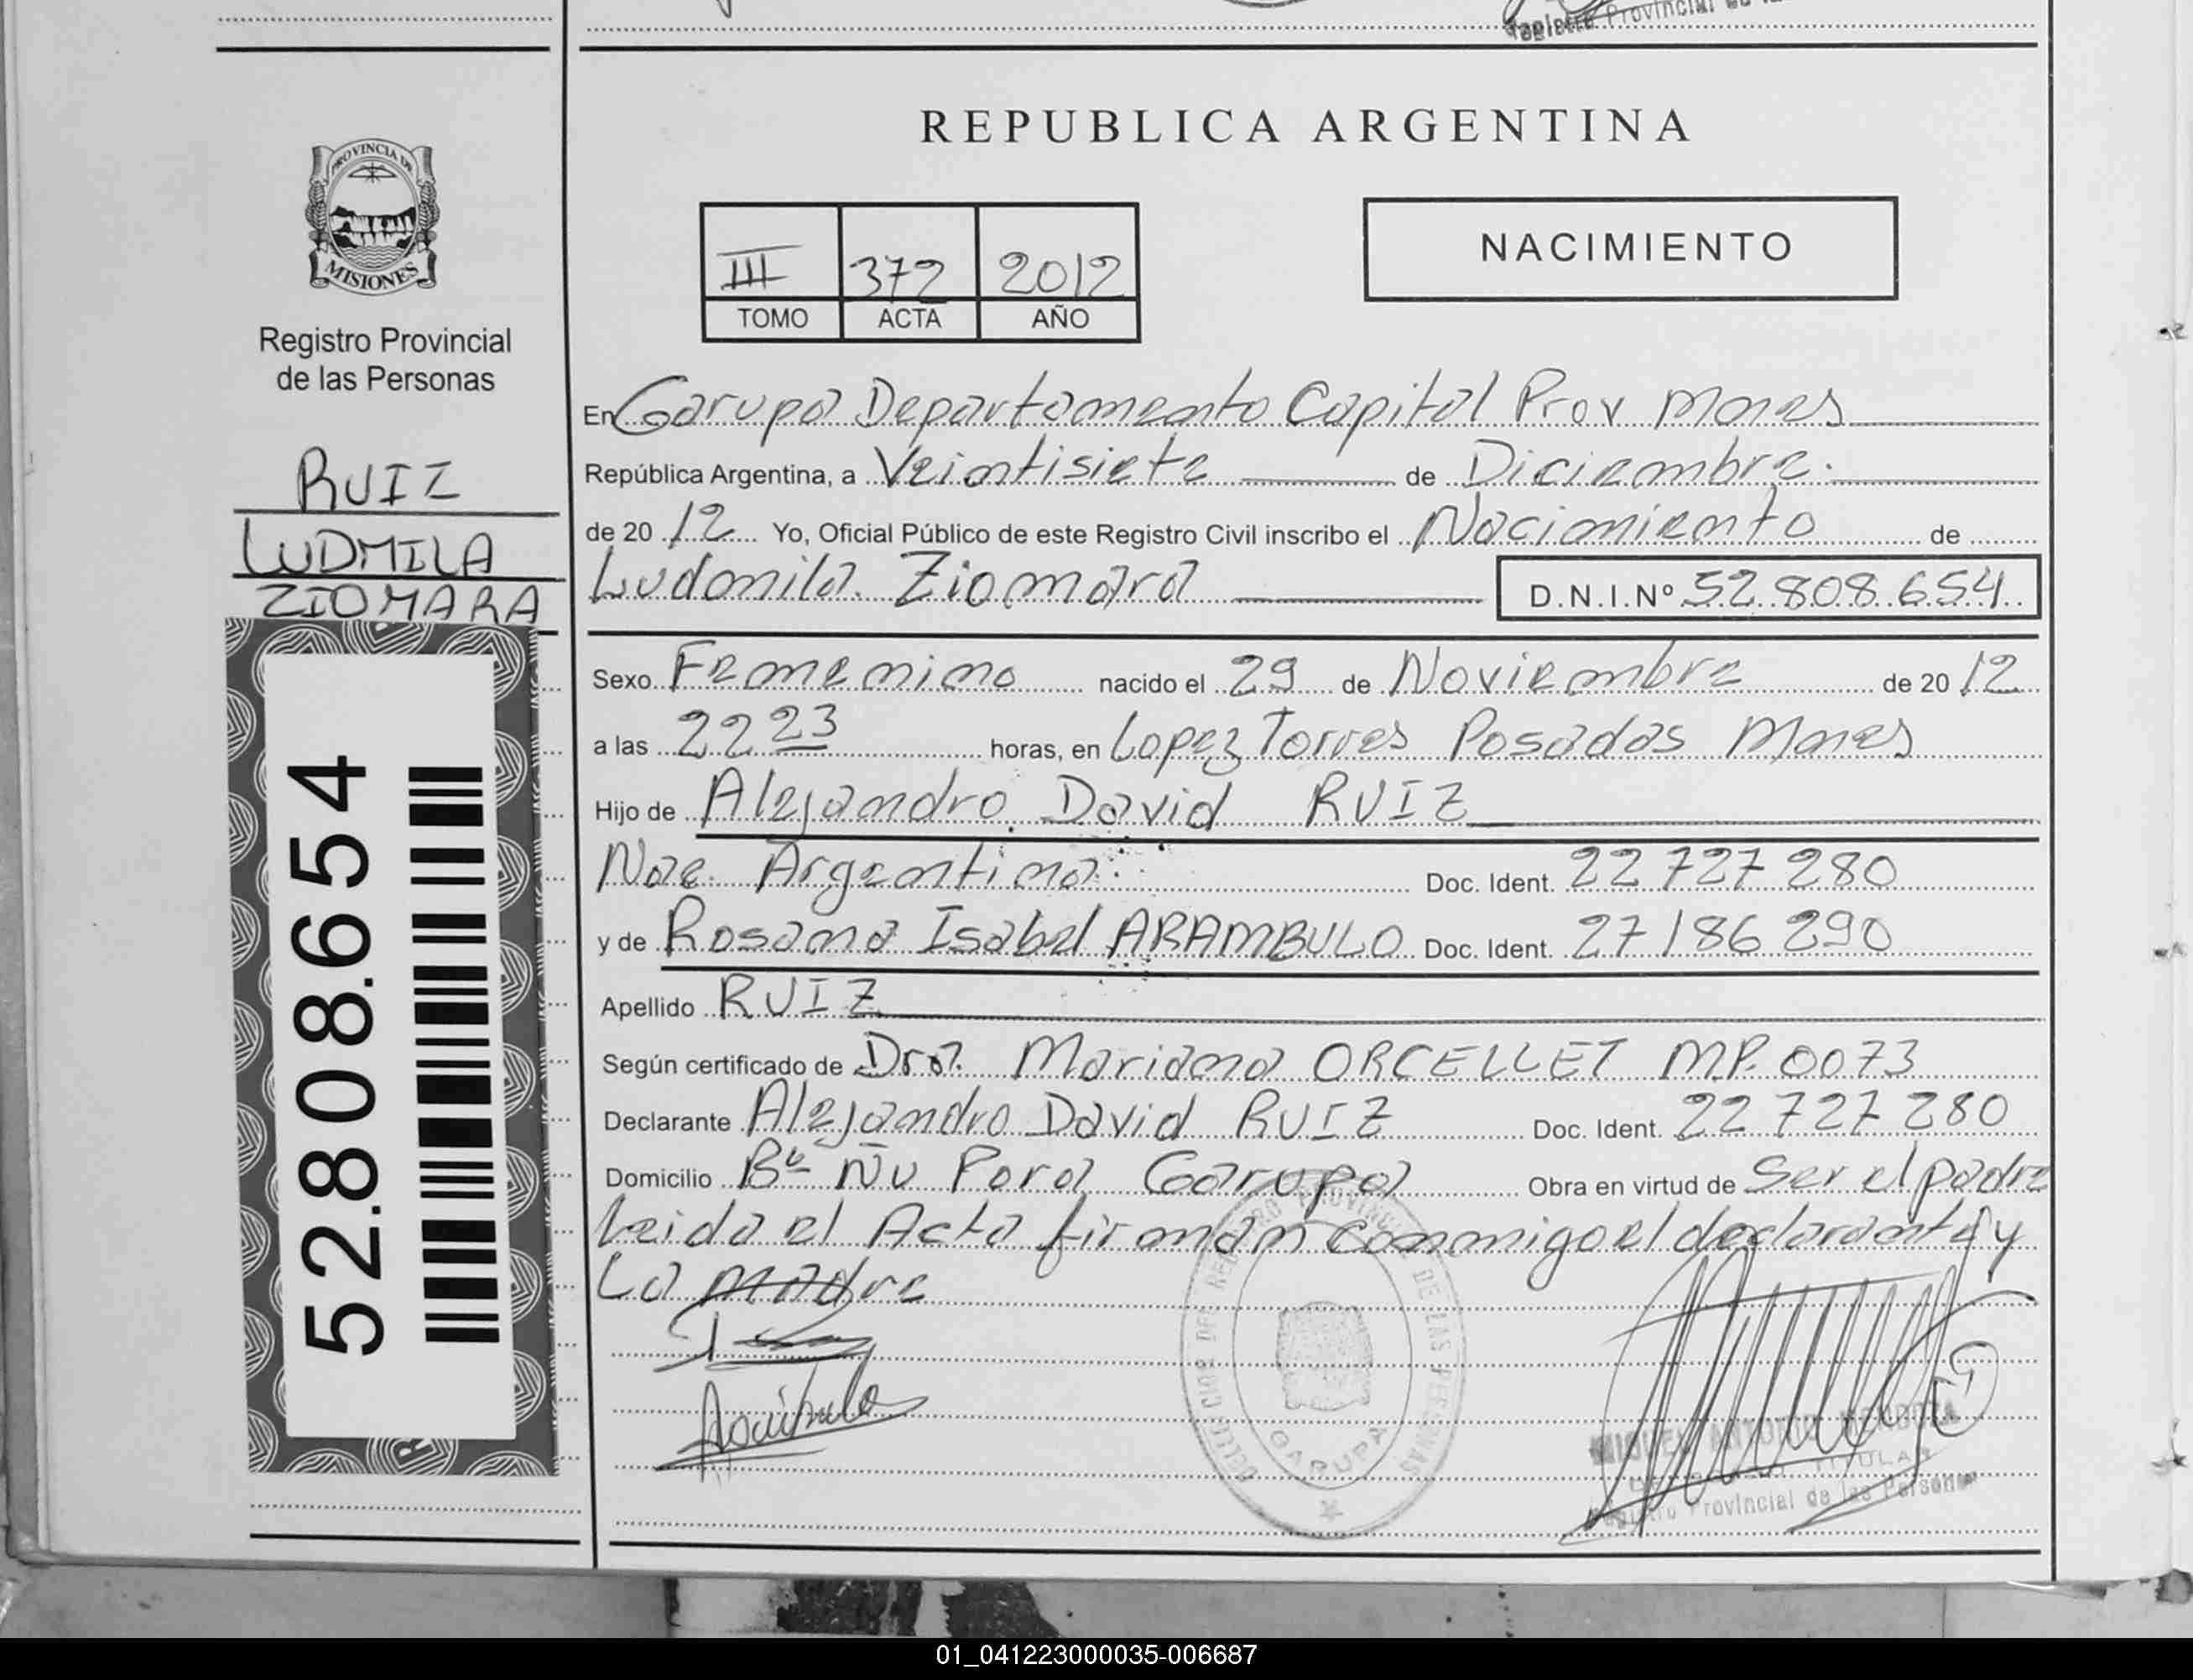 REPUBLICA ARGENTINA
PROVINCIA DE
MISIONES
Registro Provincial
de las Personas
RUIZ
LUDMILA
ZIOMARA
52.808.654
III 372 2012
TOMO ACTA AÑO
NACIMIENTO
En Garupa Departamento Capital Prov Mnes
República Argentina, a Veintisiete de Diciembre.
de 20 12 Yo, Oficial Público de este Registro Civil inscribo el Nacimiento de
Ludmila Ziomara D.N.I.Nº 52.808.654
Sexo Femenino nacido el 29 de Noviembre de 20 12
a las 22 23 horas, en Lopez Torres Posadas Mnes
Hijo de Alejandro David RUIZ
Nac. Argentina Doc. Ident. 22 727 280
y de Rosana Isabel ARAMBULO Doc. Ident. 27 186 290
Apellido RUIZ
Según certificado de Dra. Mariana ORCELLET MP. 0073
Declarante Alejandro David RUIZ Doc. Ident. 22 727 280
Domicilio Bº Ñu Pora Garupa Obra en virtud de Ser el padre
Leida el Acta firman conmigo el declarante y
La madre
DEL REGISTRO PROVINCIAL DE LAS PERSONAS
GARUPA
MIGUEL ANTONIO MENDOZA
TITULAR
Registro Provincial de las Personas
01_041223000035-006687